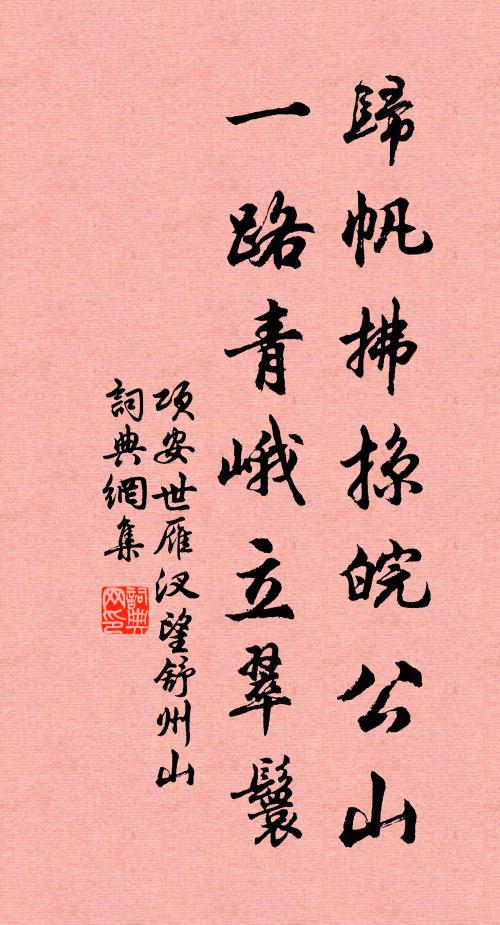 歸帆拂掠皖公山
一路青峨立翠鬟
項安世雁汊望舒州山
詞典網集
詞典网印